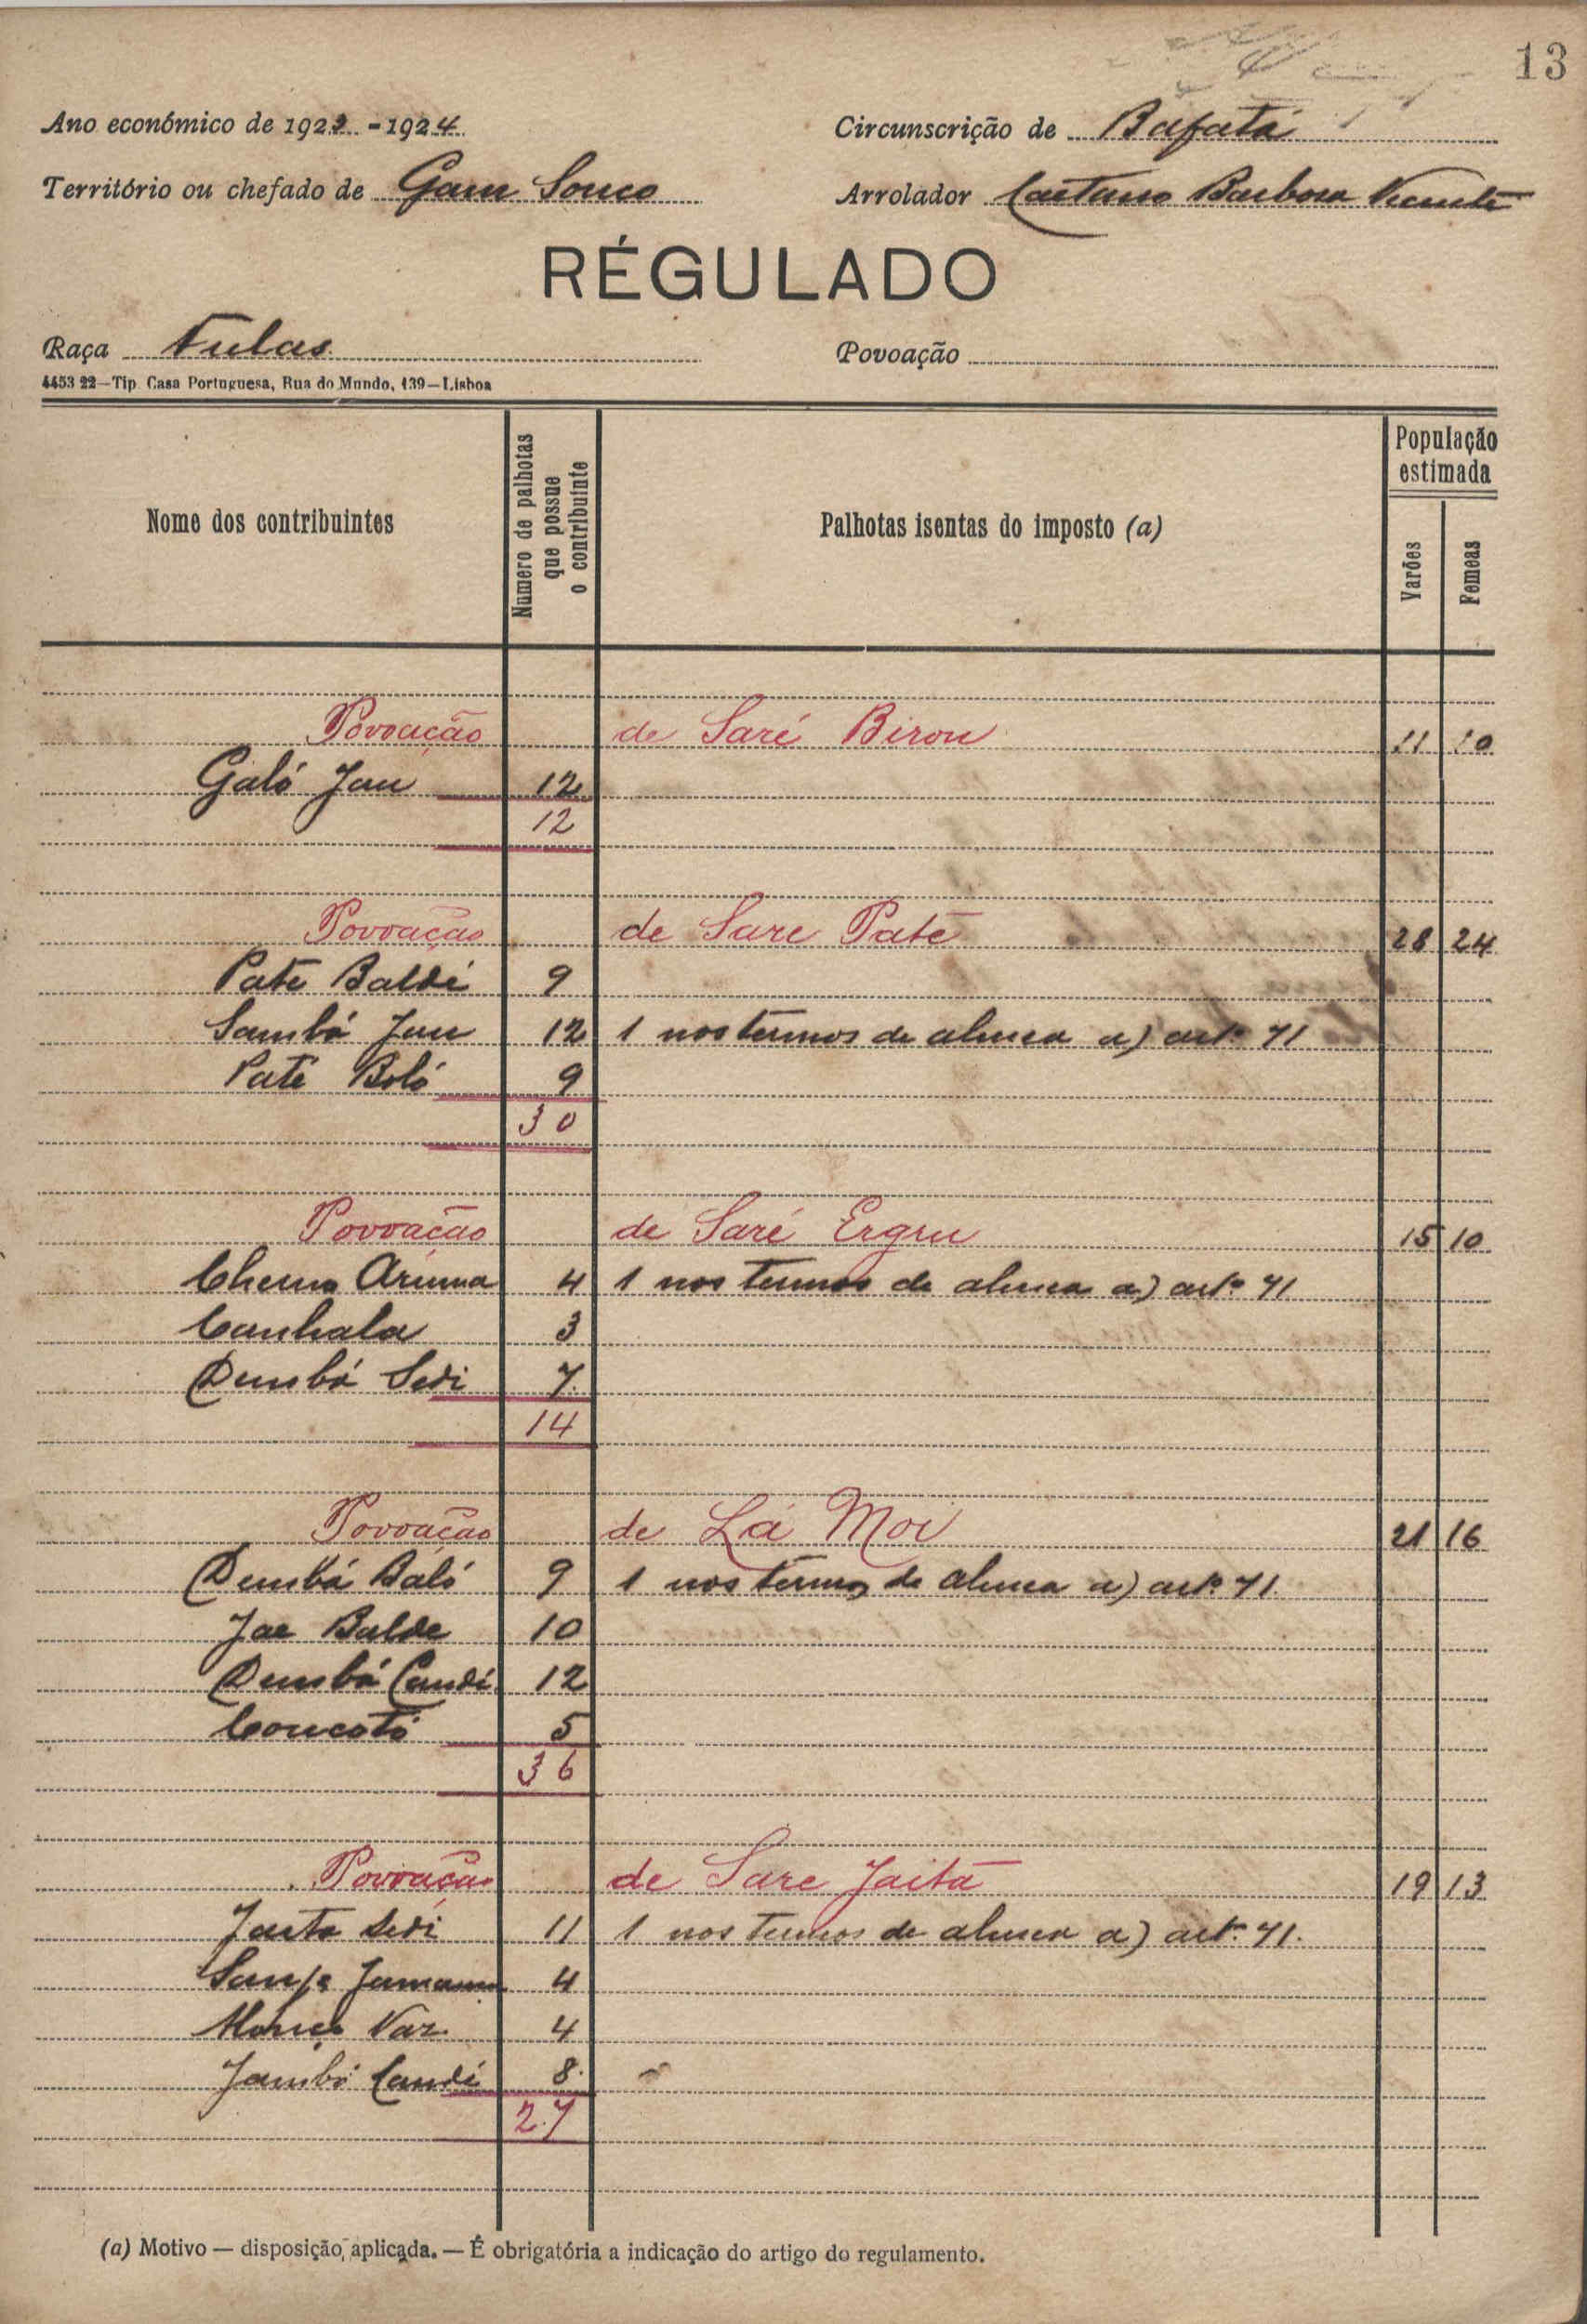 13
Ano económico de 1923 - 1924
Circunscrição de Bafatá
Território ou chefado de Gam Souco
Arrolador Caetano Barbosa Vicente
RÉGULADO
Raça Fulas
Povoação
4453 22—Tip. Casa Portuguesa, Rua do Mundo, 139—Lisboa
Nome dos contribuintes
Número de palhotas que possue o contribuinte
Palhotas isentas do imposto (a)
População estimada
Varões
Femeas
Povoação de Saré Birou 11 10
Galó Jau 12
12
Povoação de Sare Paté 28 24
Paté Baldé 9
Sambá Jau 12 1 nos termos da alinea a) artº 71
Paté Boló 9
30
Povoação de Saré Ergru 15 10
Cherno Aruna 4 1 nos termos da alinea a) artº 71
Canhala 3
Dembá Sedi 7
14
Povoação de Lá Moi 21 16
Dembá Baló 9 1 nos termos da alinea a) artº 71.
Jae Balde 10
Dembá Candé 12
Concotó 5
36
Povoação de Sare Jaitá 19 13
Jaita Sedi 11 1 nos termos da alinea a) artº 71.
4
Var. 4
Jambó Candé 8.
27
(a) Motivo — disposição aplicada. — É obrigatória a indicação do artigo do regulamento.